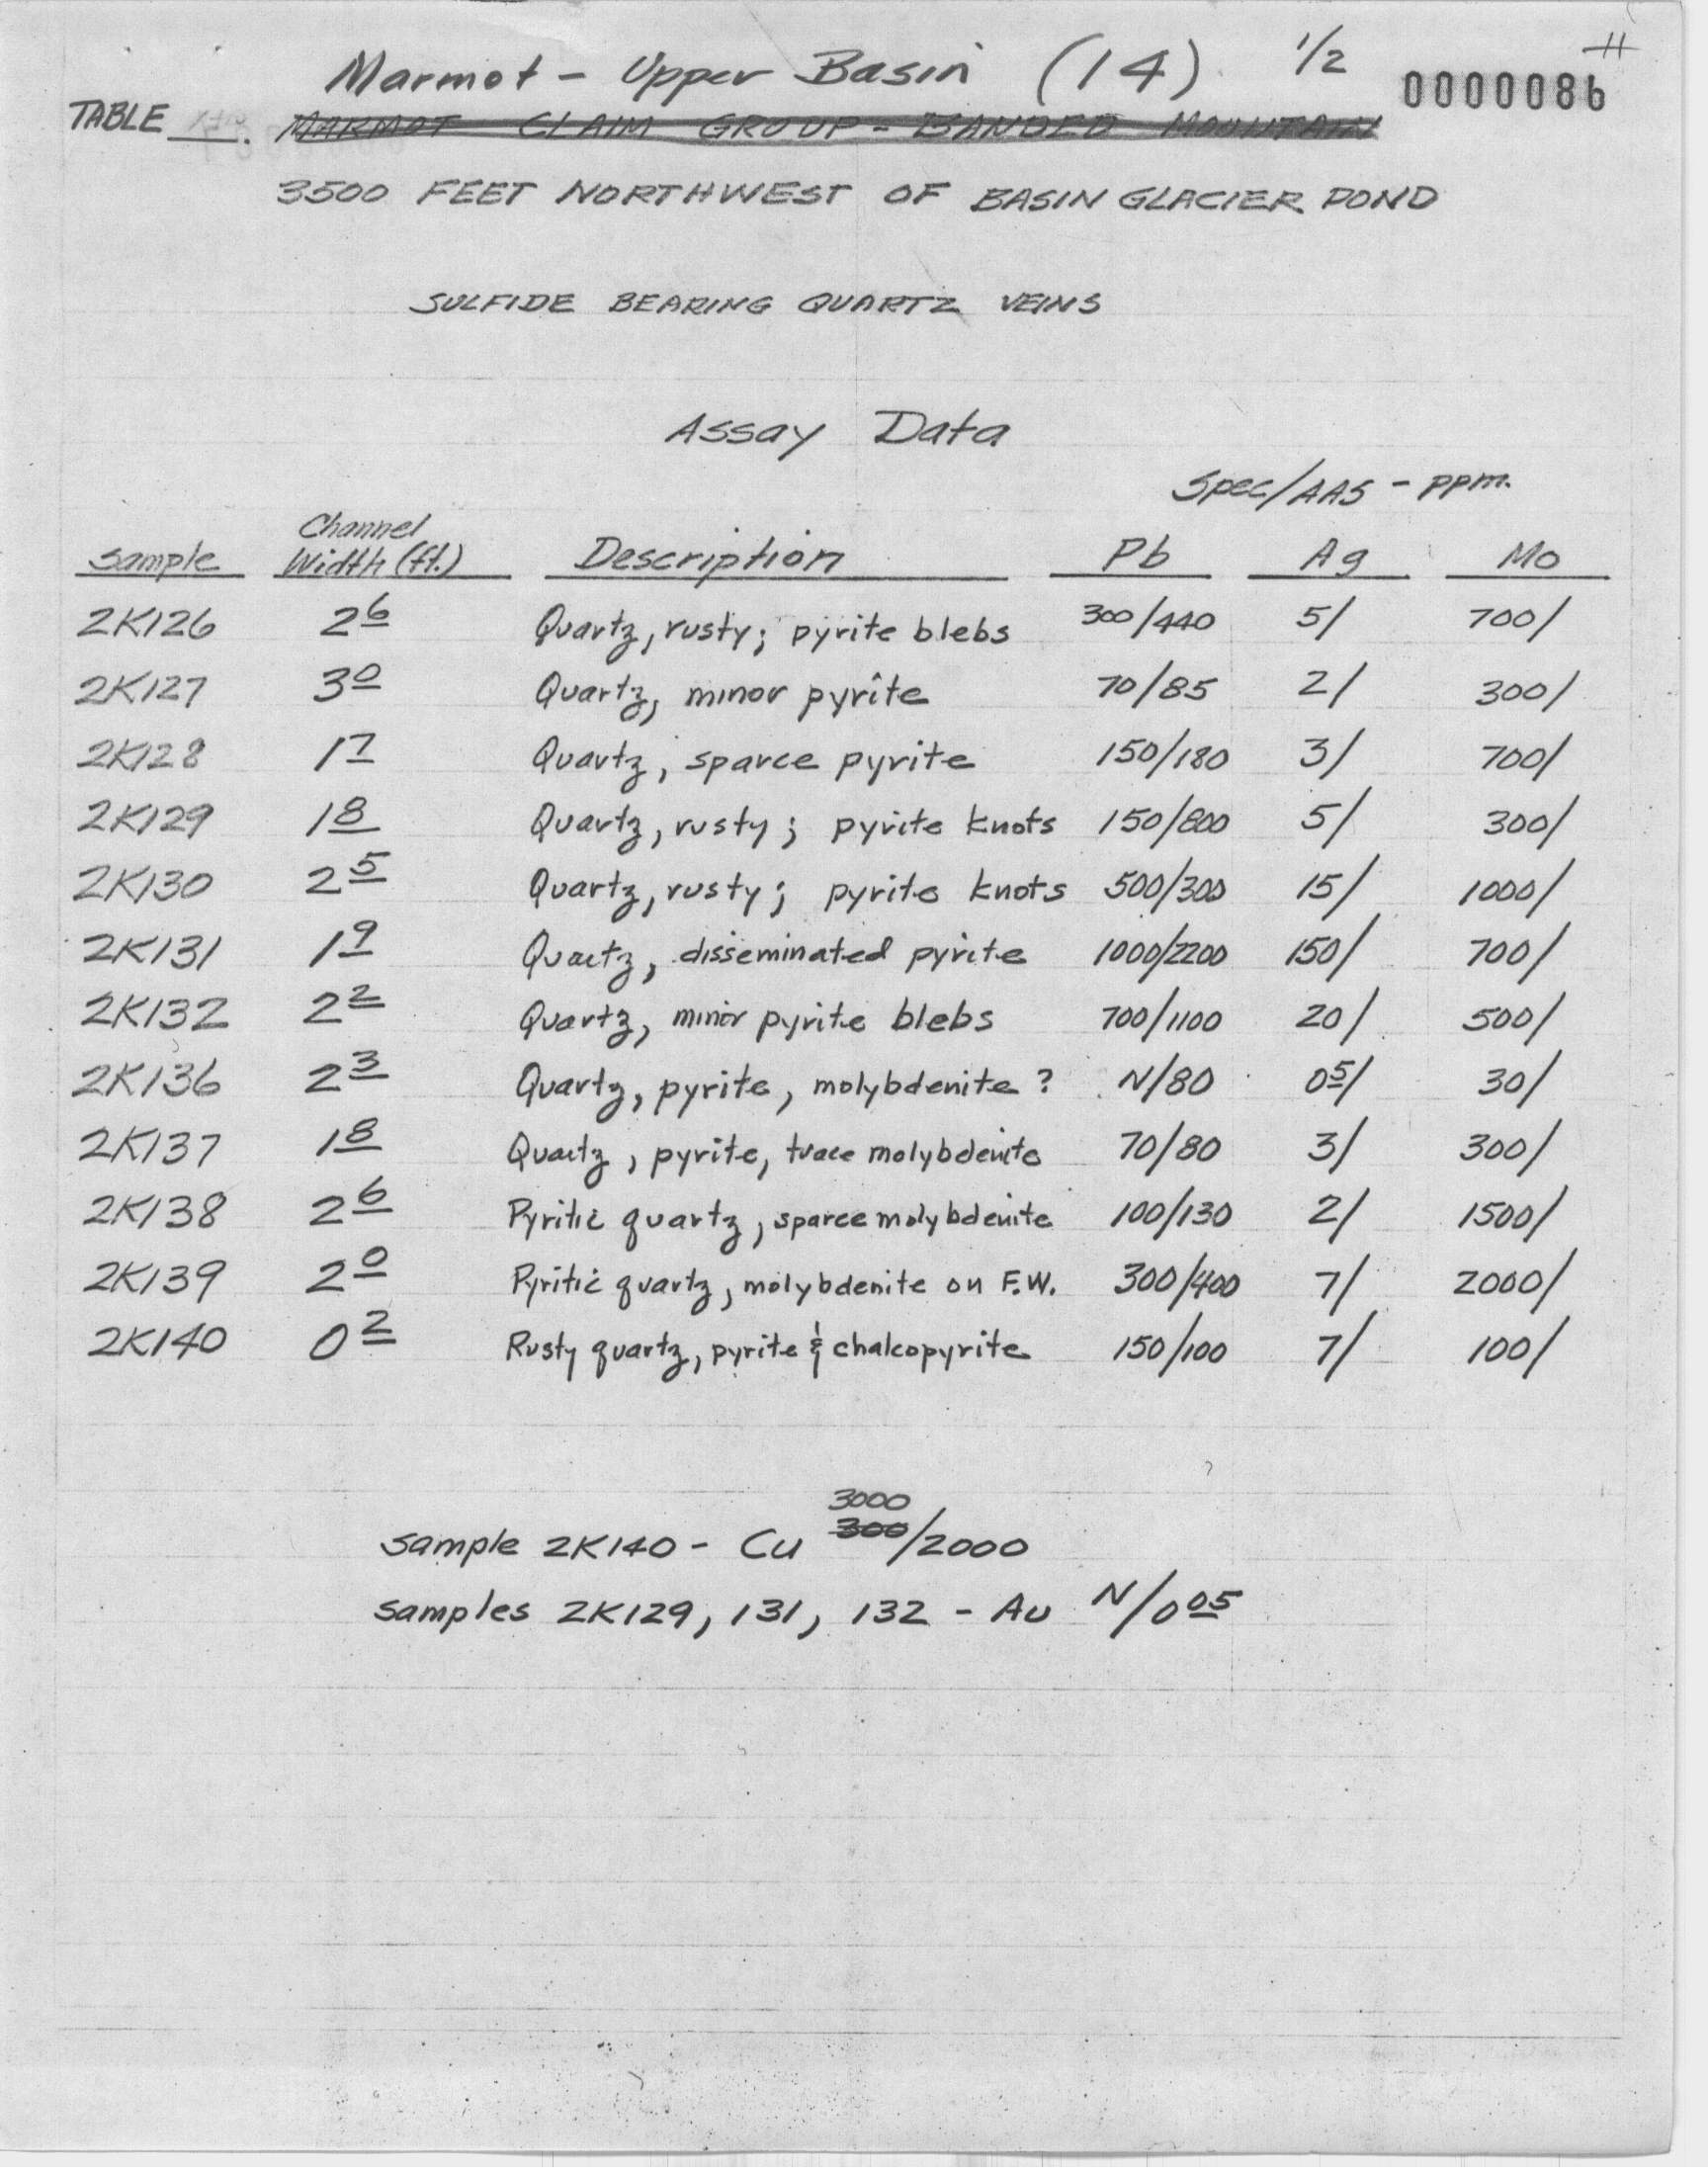 Marmot - Upper Basin (14) 1/2 0000086
TABLE ___. MARMOT CLAIM GROUP - BANDED MOUNTAIN
3500 FEET NORTHWEST OF BASIN GLACIER POND
SULFIDE BEARING QUARTZ VEINS
Assay Data
Spec/AAS - ppm.
Sample Channel Width (ft.) Description Pb Ag Mo
2K126 2 6 Quartz, rusty; pyrite blebs 300/440 5/ 700/
2K127 3 0 Quartz, minor pyrite 70/85 2/ 300/
2K128 1 7 Quartz, sparce pyrite 150/180 3/ 700/
2K129 1 8 Quartz, rusty; pyrite knots 150/800 5/ 300/
2K130 2 5 Quartz, rusty; pyrite knots 500/300 15/ 1000/
2K131 1 9 Quartz, disseminated pyrite 1000/2200 150/ 700/
2K132 2 2 Quartz, minor pyrite blebs 700/1100 20/ 500/
2K136 2 3 Quartz, pyrite, molybdenite ? N/80 0 5/ 30/
2K137 1 8 Quartz, pyrite, trace molybdenite 70/80 3/ 300/
2K138 2 6 Pyritic quartz, sparce molybdenite 100/130 2/ 1500/
2K139 2 0 Pyritic quartz, molybdenite on F.W. 300/400 7/ 2000/
2K140 0 2 Rusty quartz, pyrite & chalcopyrite 150/100 7/ 100/
3000
Sample 2K140 - Cu 300/2000
Samples 2K129, 131, 132 - Au N/0 05